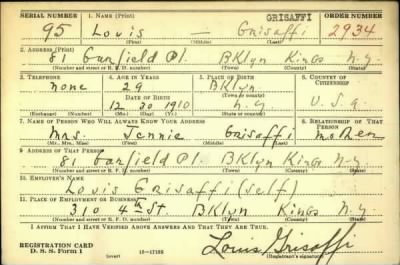 SERIAL NUMBER 1. NAME (Print) GRISAFFI ORDER NUMBER
95 Louis — Grisaffi 2934
(First) (Middle) (Last)
2. ADDRESS (Print)
81 Garfield Pl. BKlyn Kings N.Y.
(Number and street or R. F. D. number) (Town) (County) (State)
3. TELEPHONE 4. AGE IN YEARS 5. PLACE OF BIRTH 6. COUNTRY OF CITIZENSHIP
none 29 BKlyn
DATE OF BIRTH (Town or county)
12 30 1910 N.Y. U.S.A.
(Exchange) (Number) (Mo.) (Day) (Yr.) (State or country)
7. NAME OF PERSON WHO WILL ALWAYS KNOW YOUR ADDRESS 8. RELATIONSHIP OF THAT PERSON
Mrs. Jennie Grisaffi Mother
(Mr., Mrs., Miss) (First) (Middle) (Last)
9. ADDRESS OF THAT PERSON
81 Garfield Pl. BKlyn Kings N.Y.
(Number and street or R. F. D. number) (Town) (County) (State)
10. EMPLOYER'S NAME
Louis Grisaffi (self)
11. PLACE OF EMPLOYMENT OR BUSINESS
310 4th St. BKlyn Kings N.Y.
(Number and street or R. F. D. number) (Town) (County) (State)
I AFFIRM THAT I HAVE VERIFIED ABOVE ANSWERS AND THAT THEY ARE TRUE.
REGISTRATION CARD
D. S. S. Form 1 (over) 16—17105 Louis Grisaffi
(Registrant's signature)